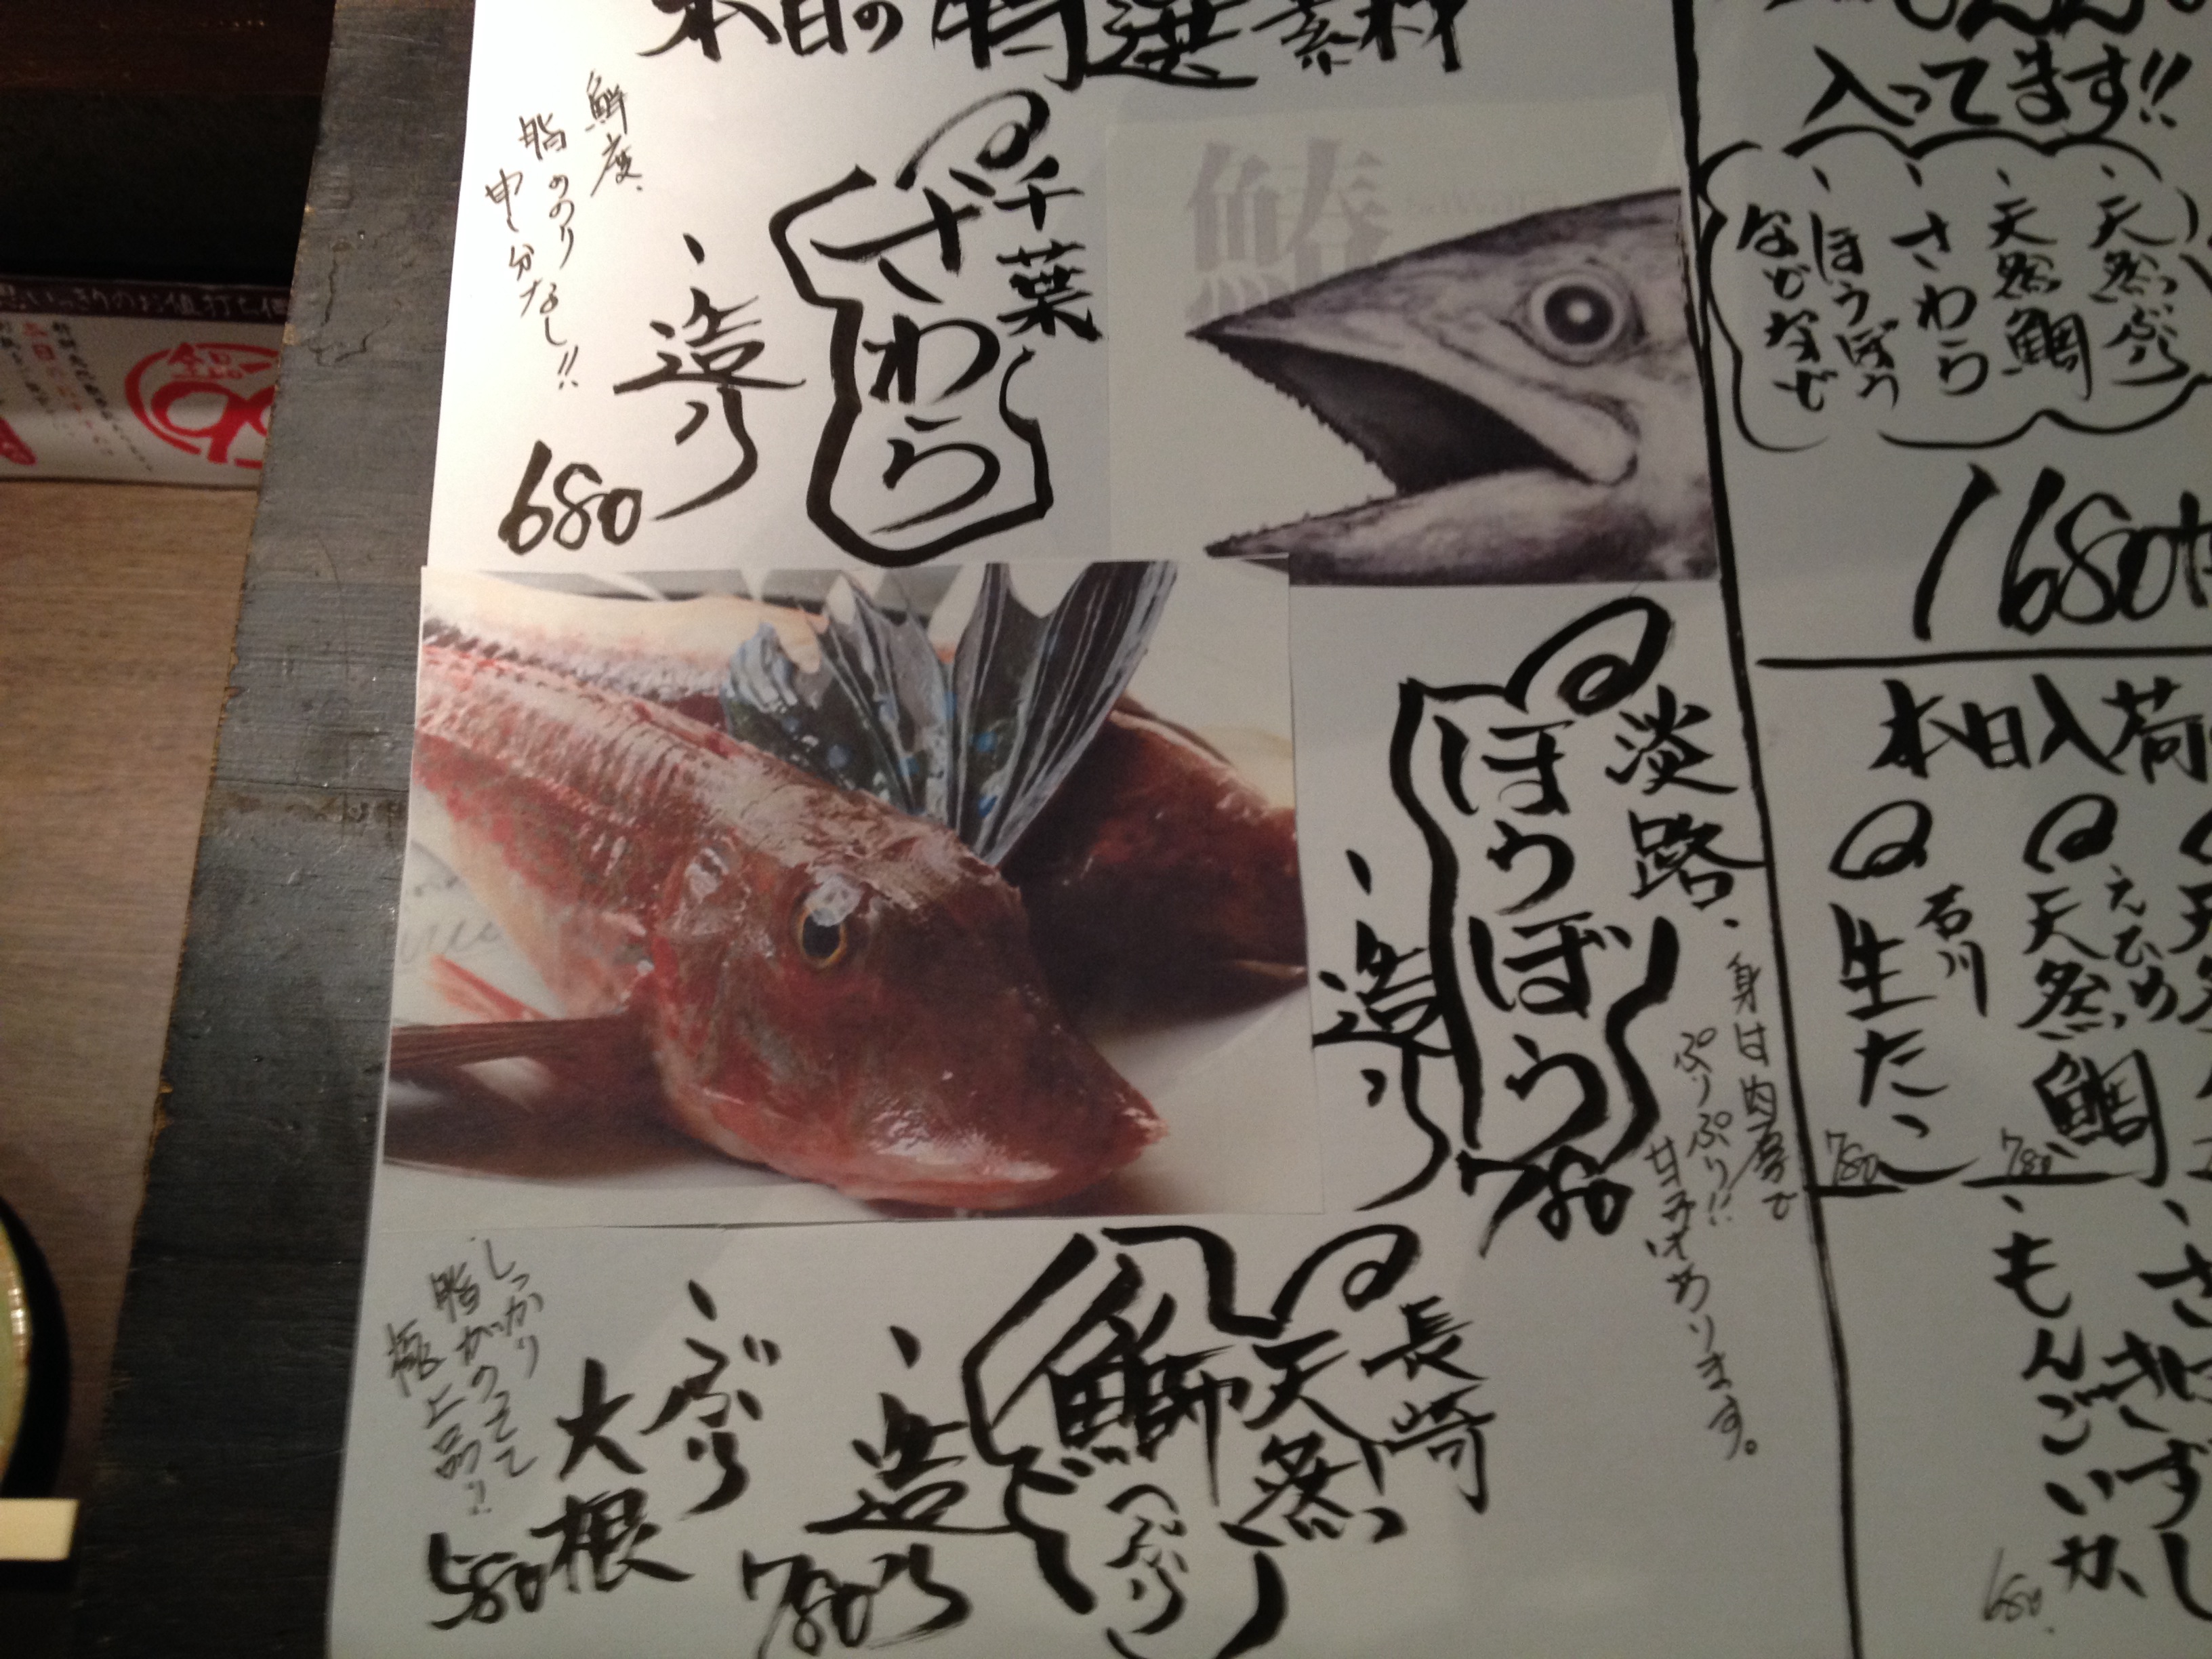 本日の特選素材
千葉
さわら
造り
680
鮮度、
脂ののり
申し分なし!!
鰆
淡路
ほうぼう
造り
780
身は肉厚で
ぷりぷり!!
甘みはあります。
長崎
天然
鰤
(ぶり)
造り
780
ぶり
大根
580
しっかり
脂がのってて
極上品!!
入ってます!!
天然ぶり
天然鯛
さわら
ほうぼう
などなど
1680
本日入荷
えひめ
天然鯛
780
石川
生たこ
780
もんごいか
680